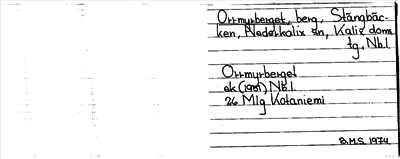 Orrmyrberget, berg, Stångbäc-
ken, Nederkalix sn, Kalix doms
tg, Nb.l.
Orrmyrberget
ek (1951) Nb.l.
26 Mlg Kotaniemi
B.M.S. 1974